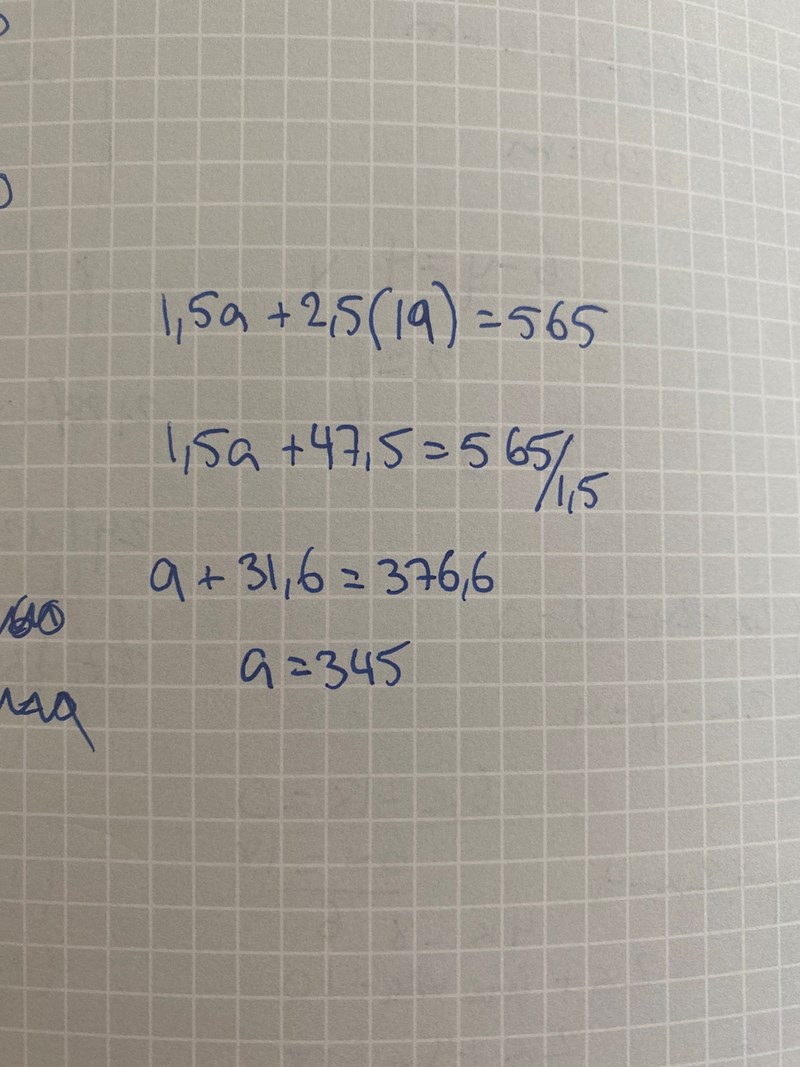 1,5a + 2,5(19) = 565
1,5a + 47,5 = 565/1,5
a + 31,6 = 376,6
a = 345